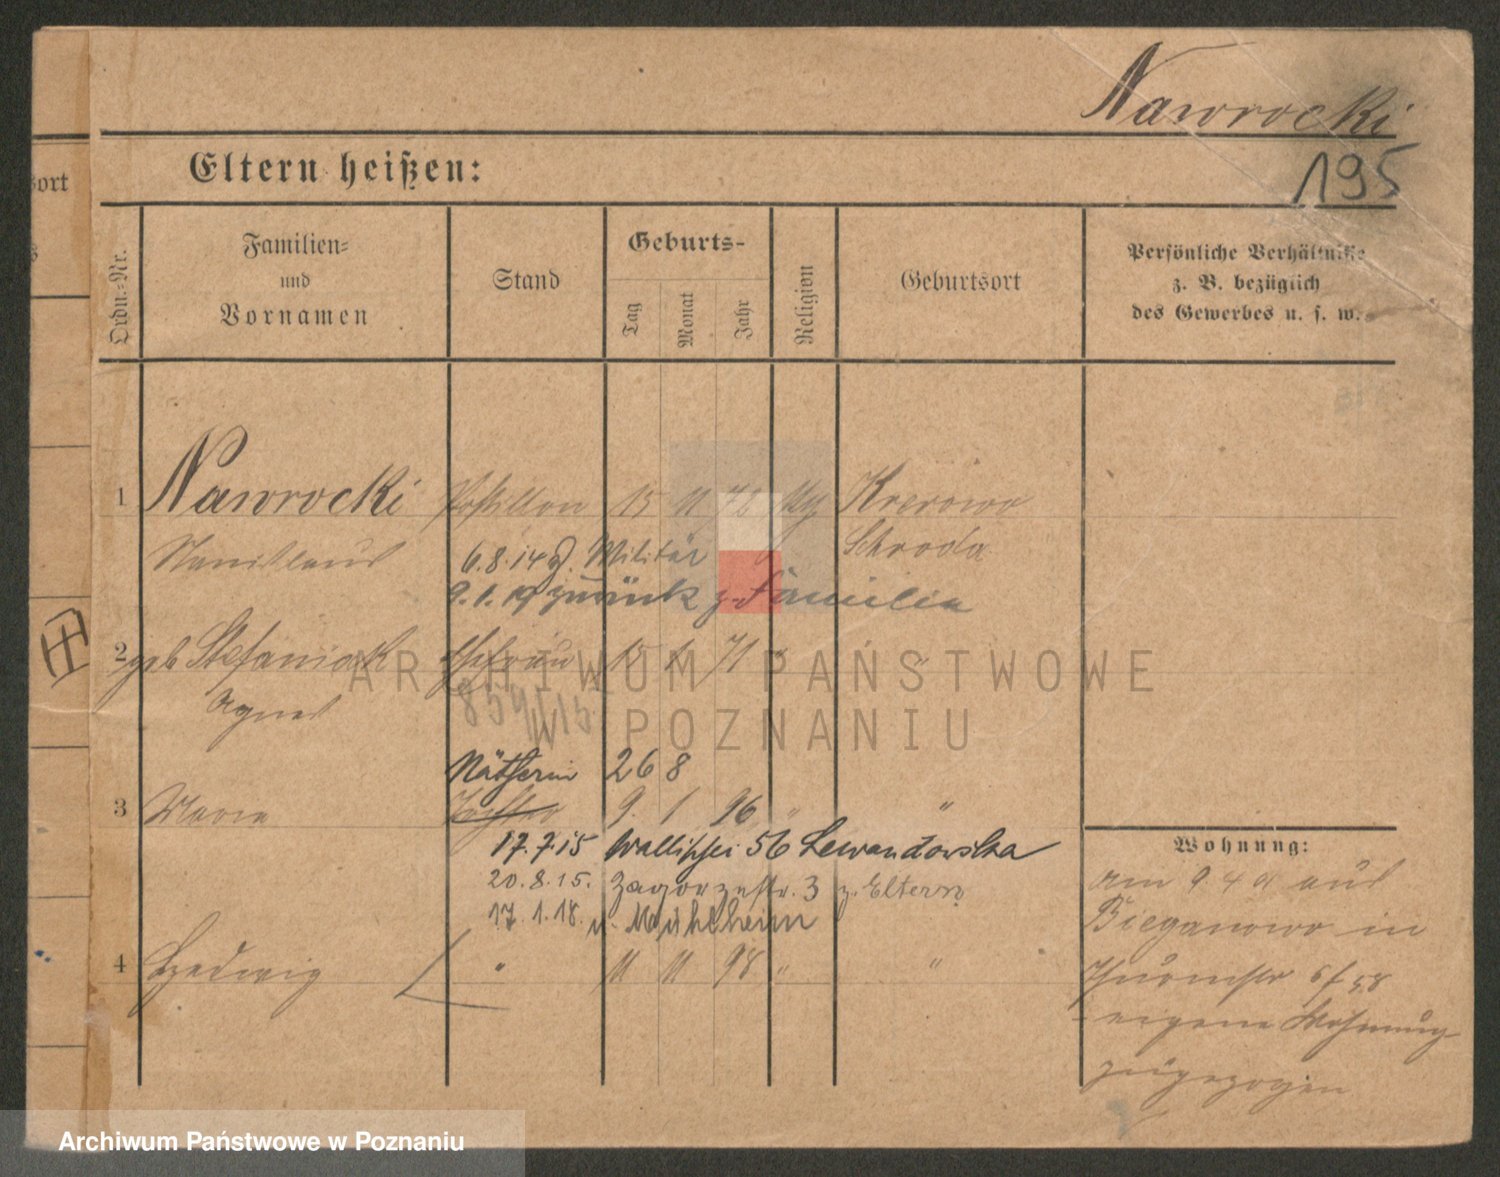 Nawrocki
Eltern heißen:
195
ort
Ordn.-Nr.
Familien-
und
Vornamen
Stand
Geburts-
Tag
Monat
Jahr
Religion
Geburtsort
Persönliche Verhältnisse
z. B. bezüglich
des Gewerbes u. s. w.
1 Nawrocki Postillon 15 11 76 Krerowo
Schroda
6.8.14 z. Militär
9.1.19 zurück z. Familie
2 geb Stefaniak Ehefrau 15 1 71 "
Agnes
Nätherin 26 8
3 Maria Tochter 9. 1 96 " "
17.7.15 Wallischei 56 Lewandowska
20.8.15. Zagorzestr. 3 z. Eltern
17.1.18. n. Mühlheim
4 Hedwig " 11 11 98 " "
Wohnung:
am 9 4 01 aus
Bieganowo in
eigene Wohnung
zugezogen
ARCHIWUM PAŃSTWOWE
W POZNANIU
Archiwum Państwowe w Poznaniu